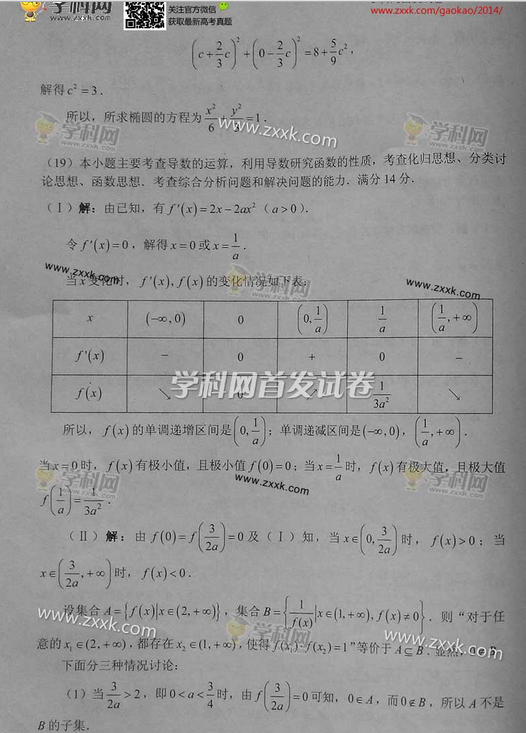 学科网
关注官方微信
获取最新高考真题
www.zxxk.com/gaokao/2014/
(c+2/3c)²+(0-2/3c)²=8+5/9c²,
解得c²=3.
所以，所求椭圆的方程为x²/6+y²/3=1.
学科网
www.zxxk.com
学科网
（19）本小题主要考查导数的运算，利用导数研究函数的性质，考查化归思想、分类讨
论思想、函数思想．考查综合分析问题和解决问题的能力．满分14分．
（Ⅰ）解：由已知，有f′(x)=2x-2ax²（a>0）.
令f′(x)=0，解得x=0或x=1/a.
www.zxxk.com
学科网
www.zxxk.com
当x变化时，f′(x),f(x)的变化情况如下表：
x (-∞,0) 0 (0,1/a) 1/a (1/a,+∞)
f′(x) - 0 + 0 -
f(x) ↘ 0 ↗ 1/3a² ↘
学科网首发试卷
所以，f(x)的单调递增区间是(0,1/a)；单调递减区间是(-∞,0)，(1/a,+∞).
当x=0时，f(x)有极小值，且极小值f(0)=0；当x=1/a时，f(x)有极大值，且极大值
f(1/a)=1/3a².
www.zxxk.com
学科网
学科网
（Ⅱ）解：由f(0)=f(3/2a)=0及（Ⅰ）知，当x∈(0,3/2a)时，f(x)>0；当
x∈(3/2a,+∞)时，f(x)<0.
设集合A={f(x)|x∈(2,+∞)}，集合B={1/f(x)|x∈(1,+∞),f(x)≠0}．则“对于任
意的x₁∈(2,+∞)，都存在x₂∈(1,+∞)，使得f(x₁)·f(x₂)=1”等价于A⊆B．显然，
www.zxxk.com
学科网
www.zxxk.com
下面分三种情况讨论：
（1）当3/2a>2，即0<a<3/4时，由f(3/2a)=0可知，0∈A，而0∉B，所以A不是
B的子集．